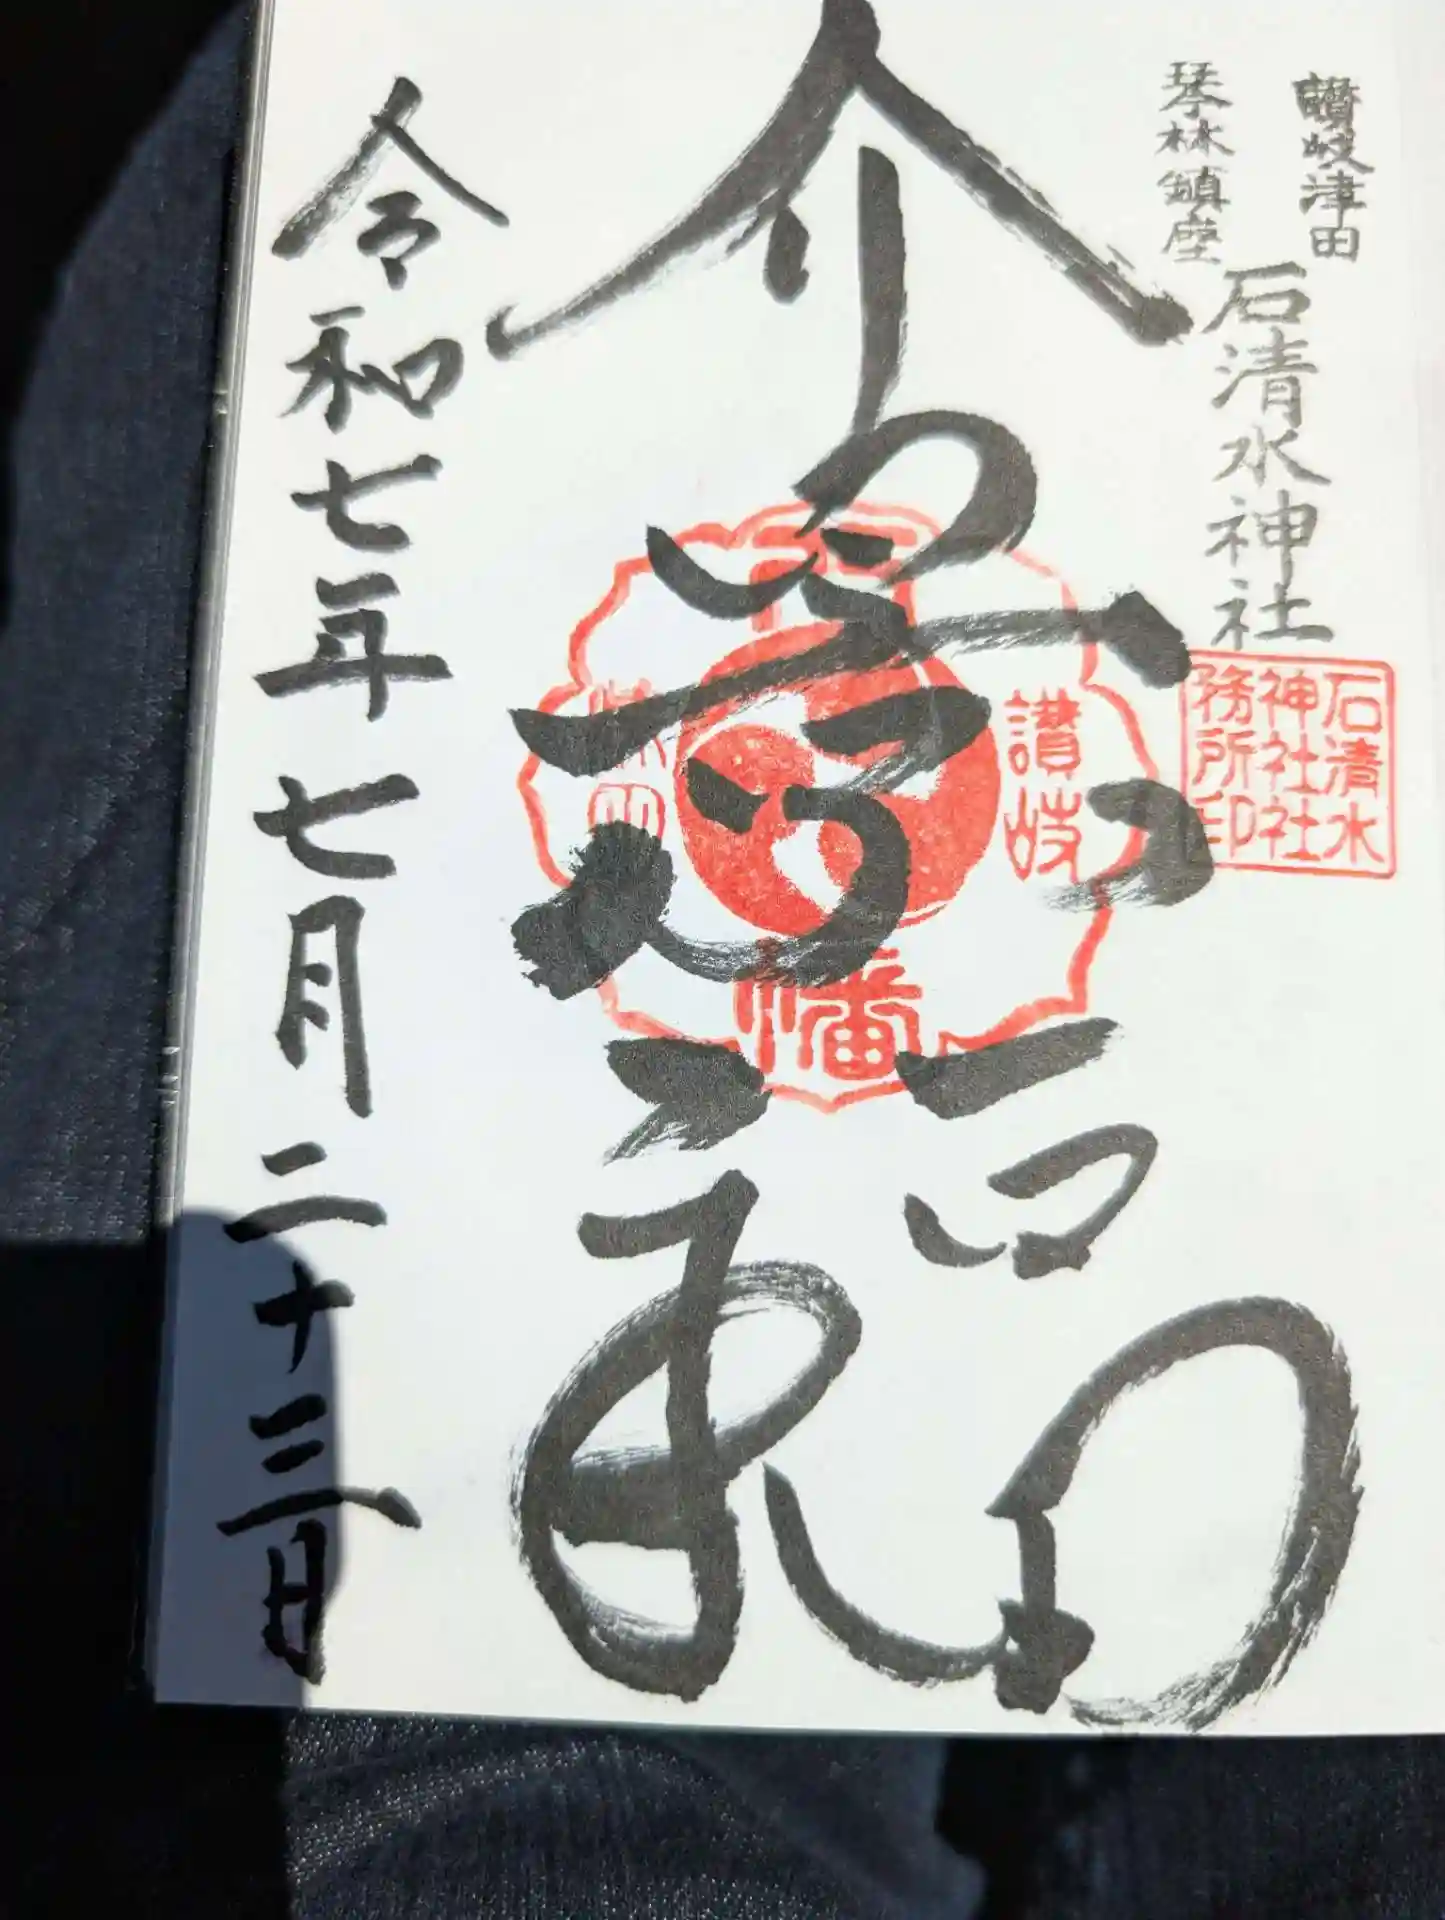 讃岐津田
琴林鎮座
石清水神社
石清水
神社社
務所印
介
福
讃岐
幡
令和七年七月二十三日